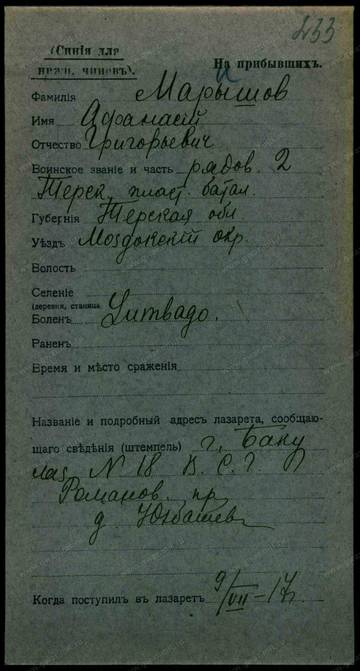 233
(Синія для
нижн. чиновъ).
На прибывшихъ.
Фамилія Марышов
и
Имя Афанасій
Отчество Григорьевич
Воинское званіе и часть рядов. 2
Терск. пласт. батал.
Губернія Терская обл
Уѣздъ Моздокскій окр.
Волость
Селеніе
(деревня, станица)
Боленъ
Раненъ
Время и мѣсто сраженія
Названіе и подробный адресъ лазарета, сообщаю-
щаго свѣдѣнія (штемпель) г. Баку
лаз N 18 В. С. Г
Романов. пр
д.
Когда поступилъ въ лазаретъ 9/VII-17г.